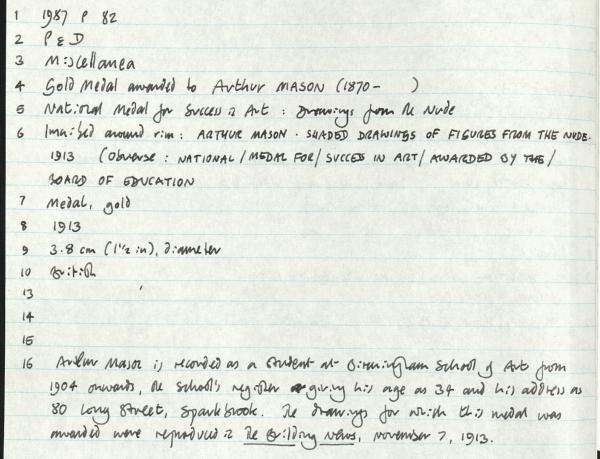 1 1987 P 82
2 P & D
3 Miscellanea
4 Gold Medal awarded to Arthur MASON (1870- )
5 National Medal for Success in Art : Drawings from the Nude
6 Inscribed around rim: ARTHUR MASON · SHADED DRAWINGS OF FIGURES FROM THE NUDE.
1913 (Obverse: NATIONAL / MEDAL FOR / SUCCESS IN ART / AWARDED BY THE /
BOARD OF EDUCATION
7 Medal, gold
8 1913
9 3.8 cm (1½ in), diameter
10 British
13
14
15
16 Arthur Mason is recorded as a student at Birmingham School of Art from
1904 onwards, the School's register giving his age as 34 and his address as
80 Long Street, Sparkbrook. The drawings for which this medal was
awarded were reproduced in The Building News, November 7, 1913.